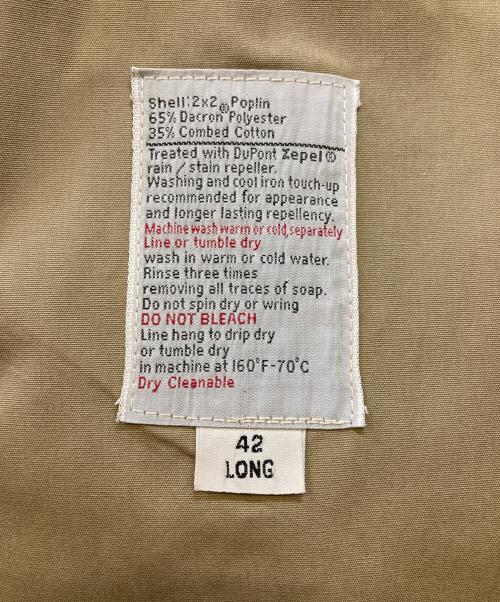 Shell: 2x2 Poplin
65% Dacron® Polyester
35% Combed Cotton
Treated with DuPont Zepel®
rain / stain repeller.
Washing and cool iron touch-up
recommended for appearance
and longer lasting repellency.
Machine wash warm or cold, separately
Line or tumble dry
wash in warm or cold water.
Rinse three times
removing all traces of soap.
Do not spin dry or wring
DO NOT BLEACH
Line hang to drip dry
or tumble dry
in machine at 160°F-70°C
Dry Cleanable
42
LONG